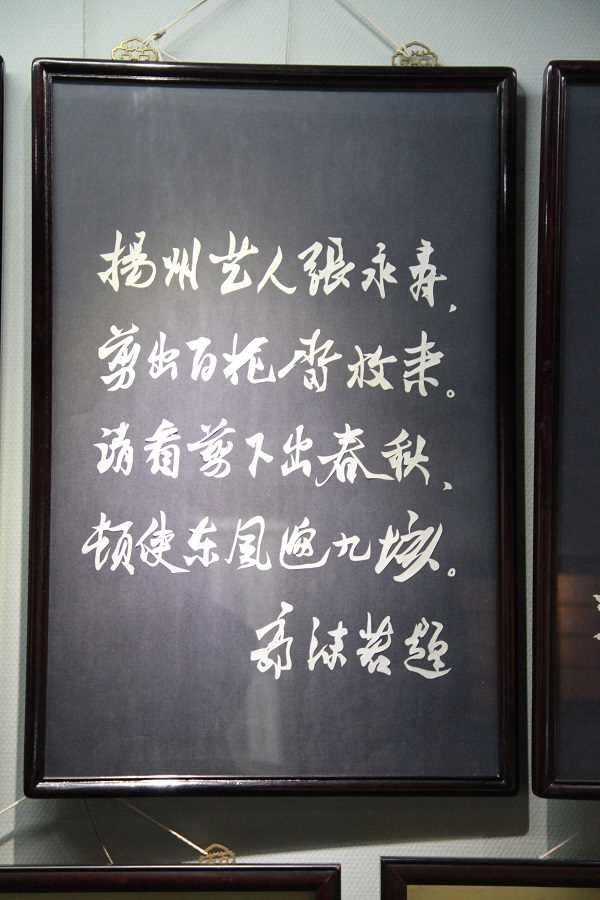 揚州艺人張永寿,
剪出百花齊放来。
请看剪下出春秋,
顿使东风遍九垓。
郭沫若题